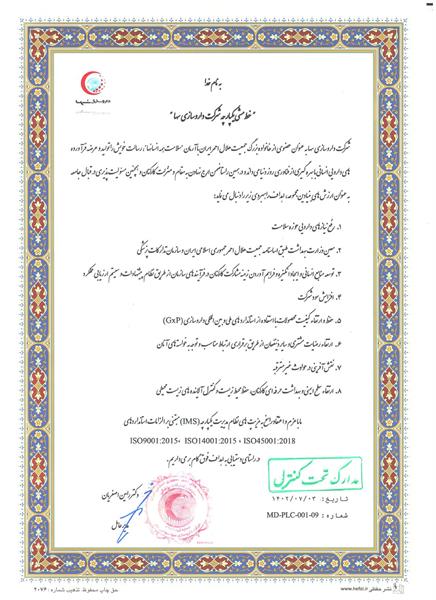 داروسازی سها
به نام خدا
"خط مشی یکپارچه شرکت داروسازی سها"
شرکت داروسازی سها به عنوان عضوی از خانواده بزرگ جمعیت هلال احمر ایران با آرمان سلامت همه انسانها، رسالت خویش را تولید و عرضه فرآورده
های دارویی انسانی با بهره گیری از فناوری روز دنیا می داند. در همین راستا ضمن ارج نهادن به مقام و منزلت کارکنان و همچنین مسئولیت پذیری در قبال جامعه
به عنوان ارزش های بنیادین مجموعه، اهداف راهبردی زیر را دنبال می نماید:
۱. رفع نیازهای دارویی حوزه سلامت
۲. معین وزارت بهداشت طبق اساسنامه جمعیت هلال احمر جمهوری اسلامی ایران و سازمان تدارکات پزشکی
۳. توسعه منابع انسانی و ایجاد انگیزه و فراهم آوردن زمینه مشارکت کارکنان در فرآیندهای سازمان از طریق نظام پیشنهادات و سیستم ارزیابی عملکرد
۴. افزایش سود شرکت
۵. حفظ و ارتقاء کیفیت محصولات با استفاده از استانداردهای ملی و بین المللی داروسازی (GxP)
۶. ارتقاء رضایت مشتری و سایر ذینفعان از طریق برقراری ارتباط مناسب و توجه به خواسته های آنان
۷. نقش آفرینی در حوادث غیر مترقبه
۸. ارتقاء سطح ایمنی و بهداشت حرفه ای کارکنان، حفظ محیط زیست و کنترل آلاینده های زیست محیطی
ما با عزم و اعتقاد راسخ به مزیت های نظام مدیریت یکپارچه (IMS) مبتنی بر الزامات استانداردهای
ISO9001:2015، ISO14001:2015، ISO45001:2018
در راستای دستیابی به اهداف فوق گام بر می داریم.
مدارک تحت کنترل
تاریخ: ۱۴۰۲/۰۷/۰۳
شماره: MD-PLC-001-09
دکتر رامین اصغریان
مدیر عامل
حق چاپ محفوظ. تذهیب شماره: ۲۰۷۶
www.hefzi.ir نشر حفظی